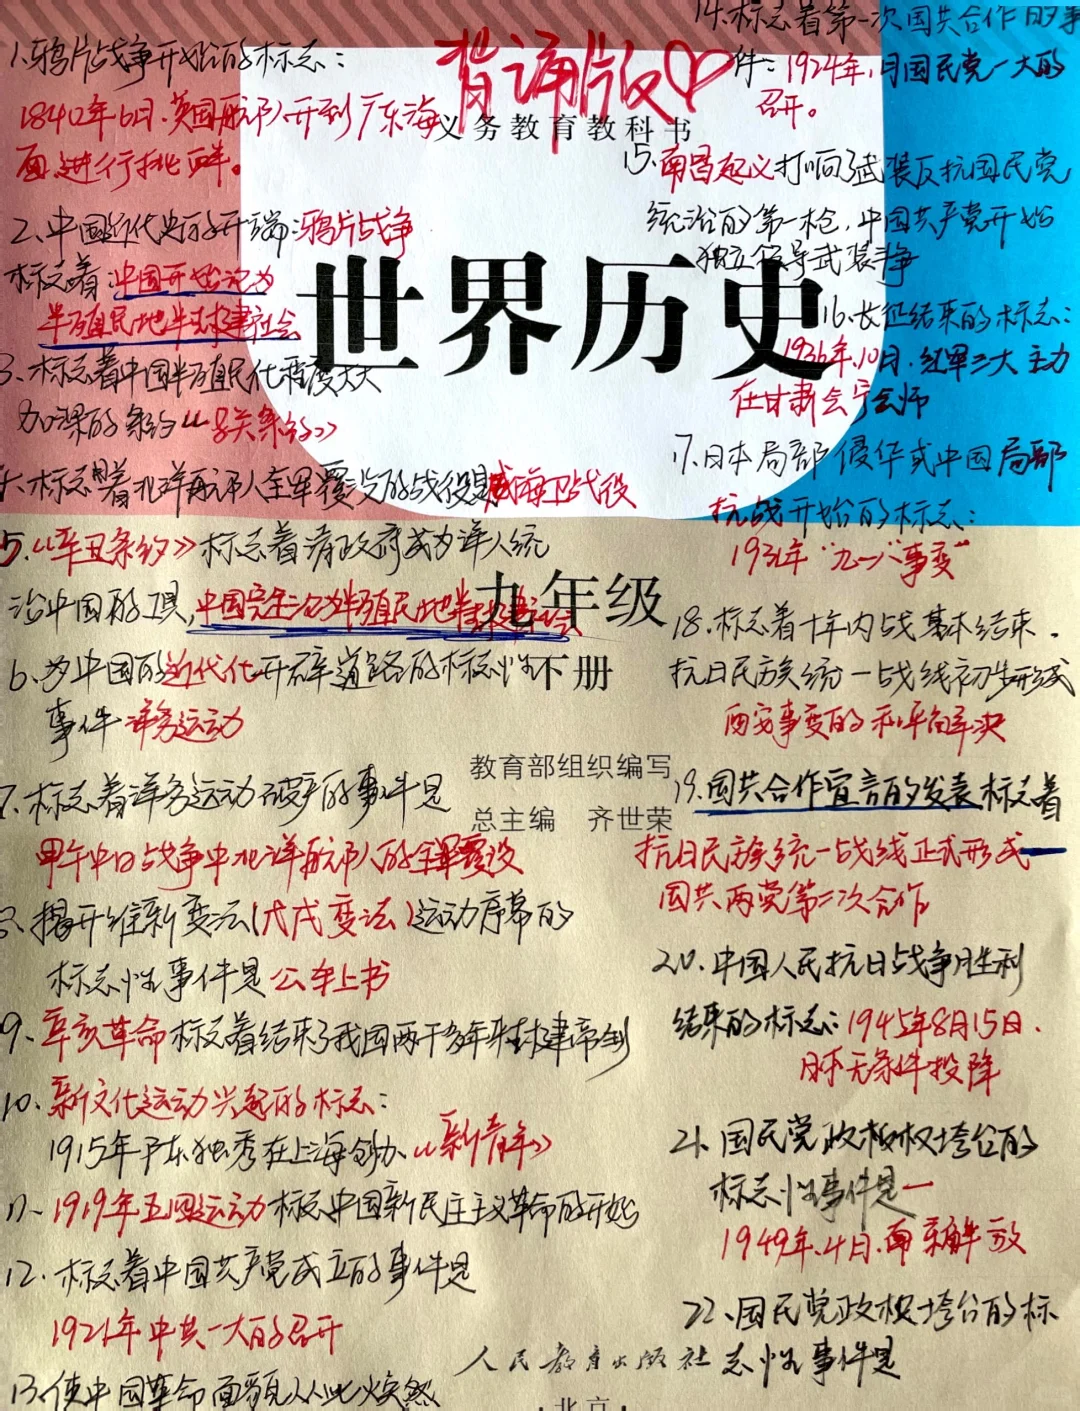 背诵版♡
1.鸦片战争开始的标志：
1840年6月.英国舰队开到广东海
面进行挑衅。
2、中国近代史的开端：鸦片战争
标志着：中国开始沦为
半殖民地半封建社会
3、标志着中国半殖民化程度大大
加深的条约《马关条约》
标志着北洋舰队全军覆没的战役是威海卫战役
5.《辛丑条约》标志着清政府成为洋人统
治中国的工具，中国完全沦为半殖民地半封建社会
6、为中国的近代化开辟道路的标志性
事件 洋务运动
7.标志着洋务运动破产的事件是
甲午中日战争中北洋舰队的全军覆没
8、揭开维新变法(戊戌变法)运动序幕的
标志性事件是 公车上书
9、辛亥革命标志着结束了我国两千多年来封建帝制
10、新文化运动兴起的标志：
1915年陈独秀在上海创办《新青年》
11、1919年五四运动标志中国新民主主义革命的开始
12、标志着中国共产党成立的事件是
1921年中共一大的召开
13、使中国革命面貌从此焕然
义务教育教科书
世界历史
九年级
下册
教育部组织编写
总主编 齐世荣
人民教育出版社
·北京·
14.标志着第一次国共合作的事
件：1924年1月国民党一大的
召开。
15.南昌起义打响了武装反抗国民党
统治的第一枪，中国共产党开始
独立领导武装斗争
16、长征结束的标志：
1936年.10月.红军三大主力
在甘肃会宁会师
17、日本局部侵华或中国局部
抗战开始的标志：
1931年"九一八"事变"
18.标志着十年内战基本结束.
抗日民族统一战线初步形成
西安事变的和平解决
19.国共合作宣言的发表标志着
抗日民族统一战线正式形成一
国共两党第二次合作
20.中国人民抗日战争胜利
结束的标志：1945年8月15日.
日本无条件投降
21.国民党政权垮台的
标志性事件是一
1949年.4月.南京解放
22、国民党政权垮台的标
志性事件是